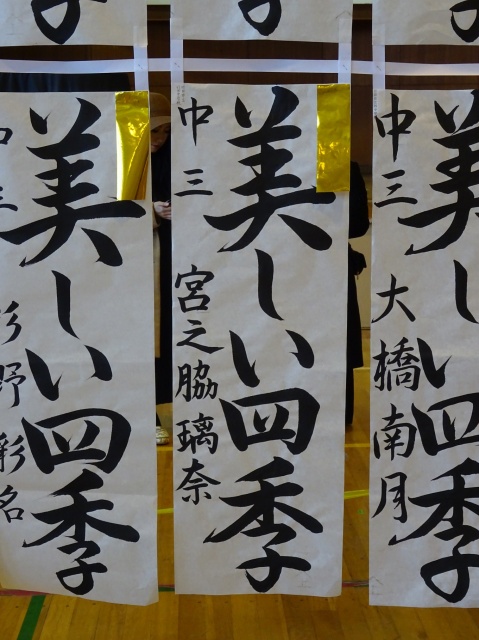 美しい四季
中三 大橋南月
美しい四季
中三 宮之脇璃奈
美しい四季
中三 杉野彩名